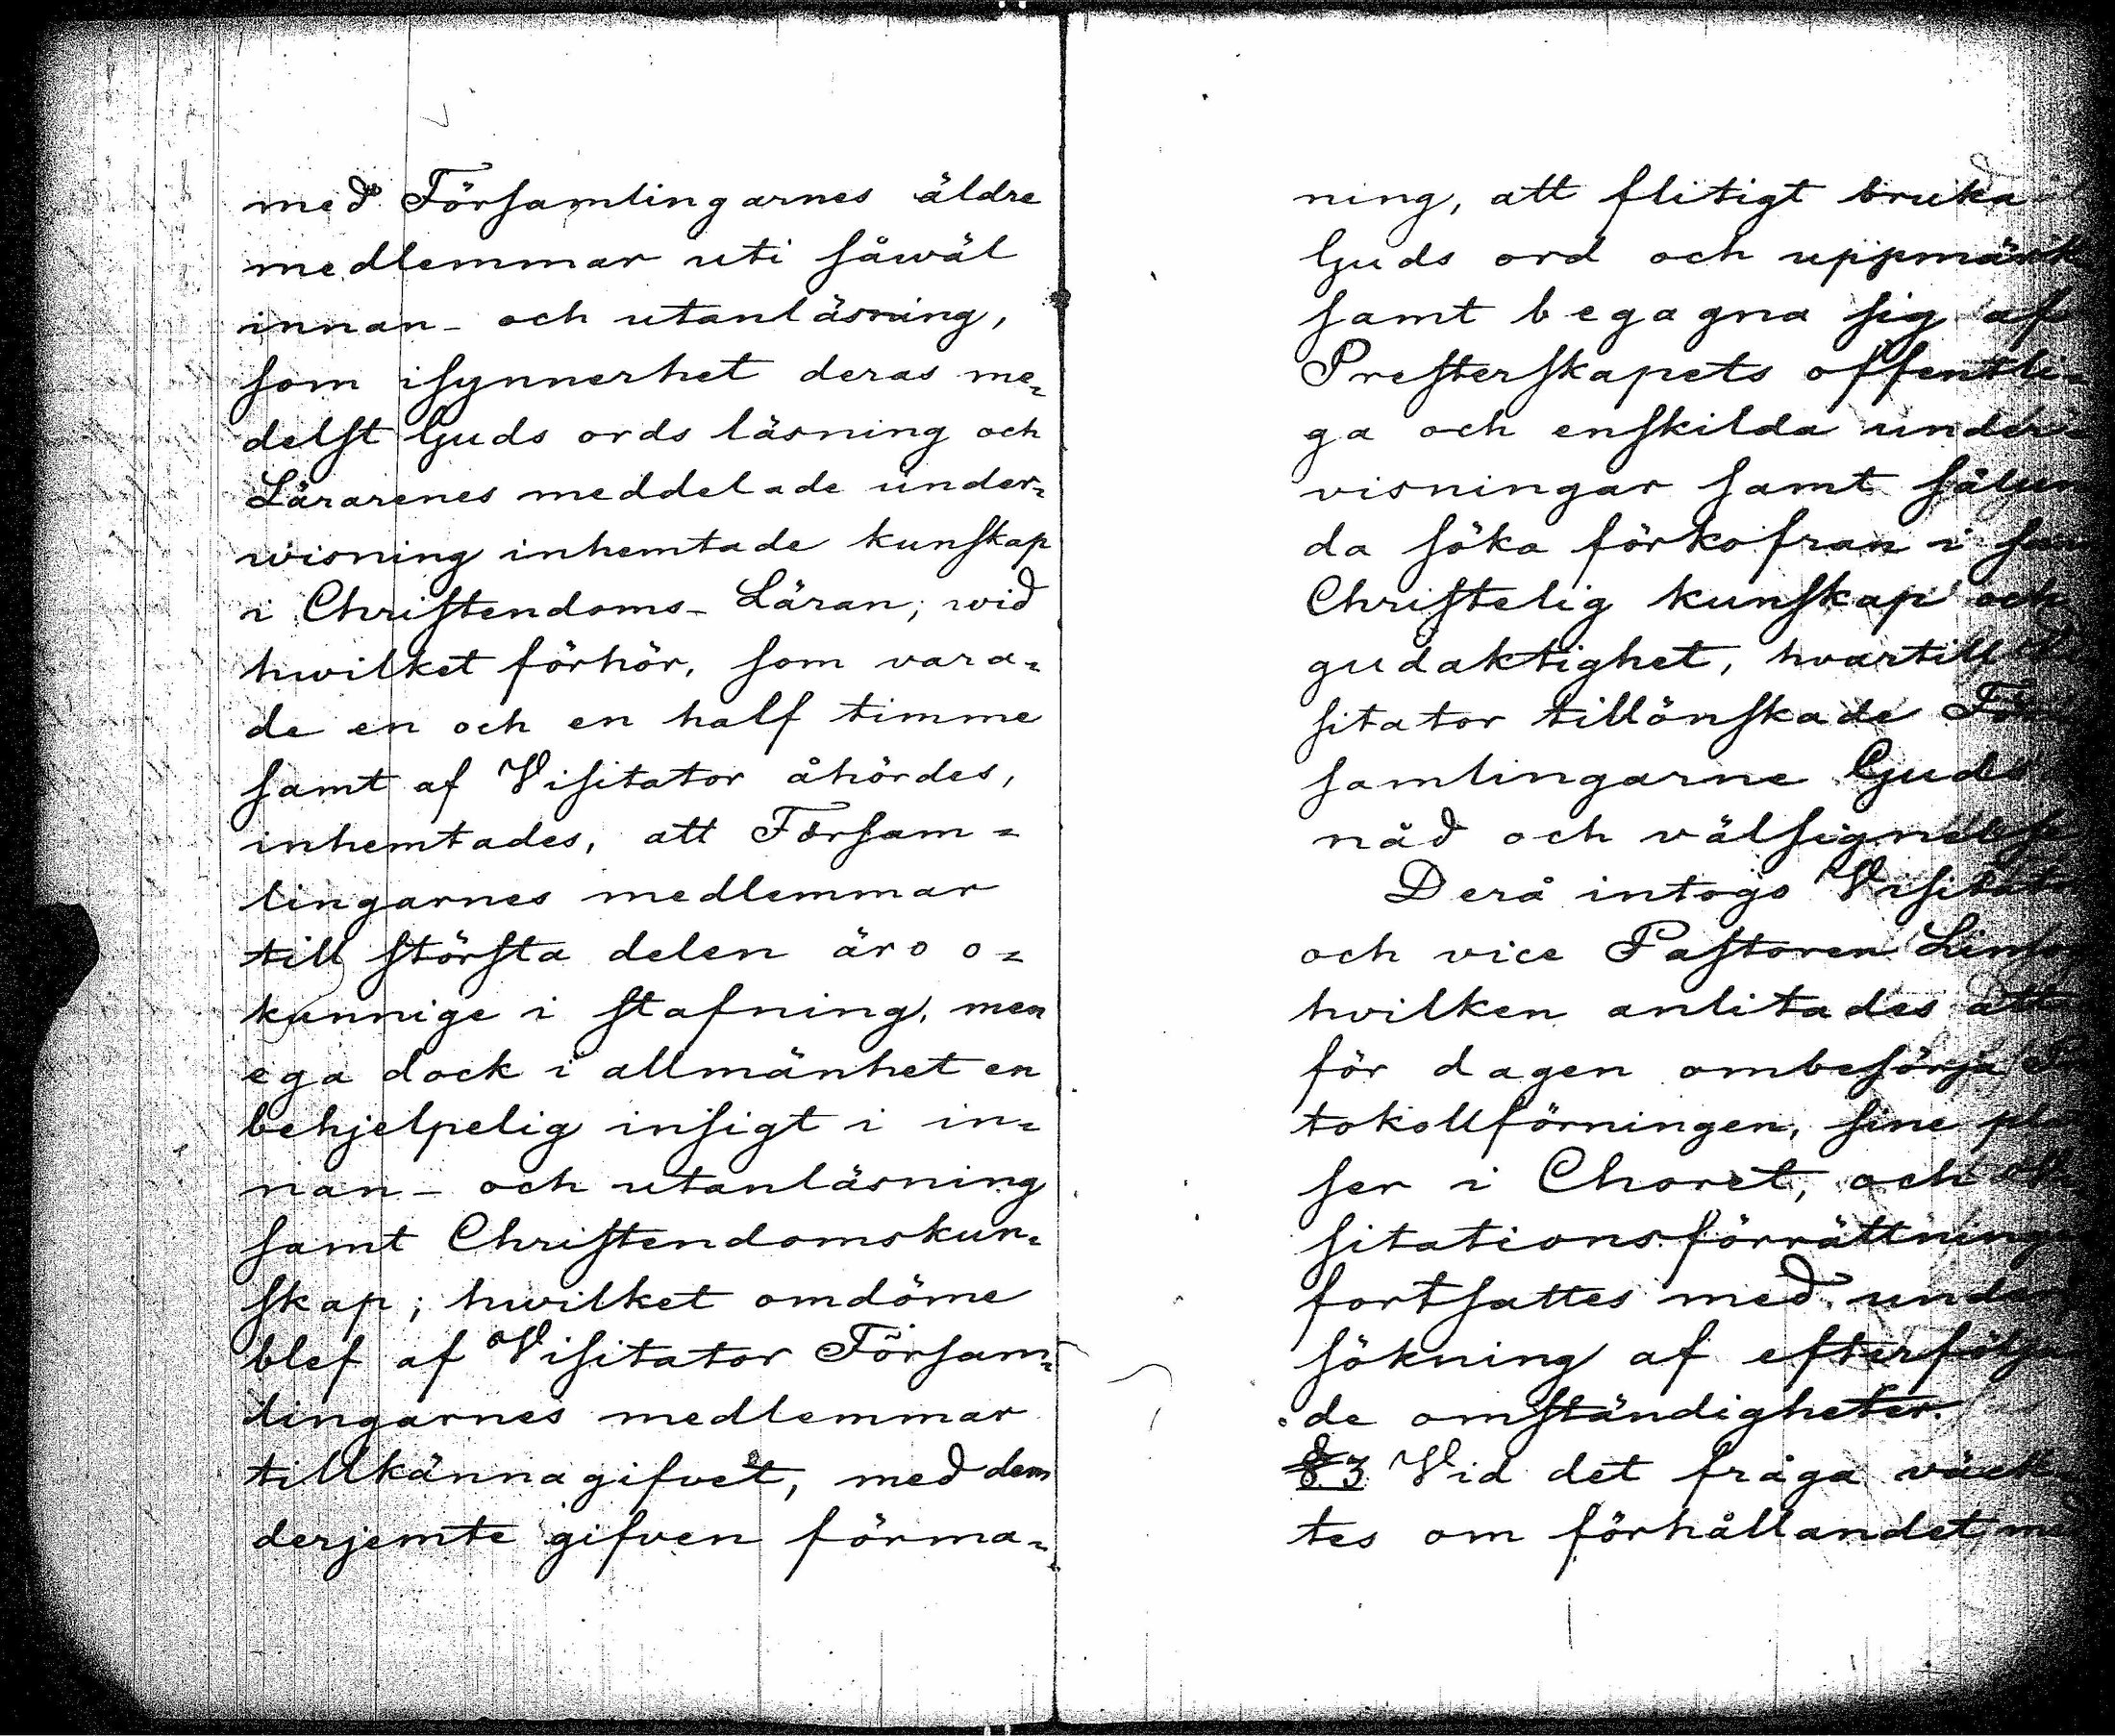 med Församlingarnes äldre
medlemmar uti såwäl
innan- och utanläsning,
som isynnerhet deras me=
delst Guds ords läsning och
Lärarenes meddelade under=
wisning inhemtade kunskap
i Christendoms- Läran; wid
hwilket förhör, som vara=
de en och en half timme
samt af Visitator åhördes,
inhemtades, att Försam=
lingarnes medlemmar
till största delen äro o=
kunnige i stafning, men
ega dock i allmänhet en
behjelpelig insigt i in=
nan- och utanläsning
samt Christendomskun=
skap; hwilket omdöme
blef af Visitator Försam=
lingarnes medlemmar
tillkännagifvet, med dem
derjemte gifven förma=
ning, att flitigt bruka
Guds ord och uppmärk
samt begagna sig af
Presterskapets offentli=
ga och enskilda under=
visningar samt sålun
da söka förkofran i
Christelig kunskap och
gudaktighet, hvartill
sitator tillönskade För
samlingarne Guds
nåd och välsignelse
Derå intogs
och vice Pastoren
hvilken anlitades att
för dagen ombesörja
tokollförningen, sine pla
ser i Choret, och
sitationsförrättninge
fortsattes med under
sökning af efterfölja
de omständigheter.
§ 3 Vid det fråga väck
tes om förhållandet med